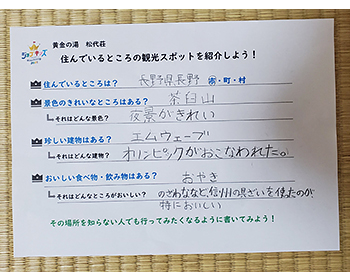 黄金の湯 松代荘
ジョブキッズ
住んでいるところの観光スポットを紹介しよう！
住んでいるところは？ 長野県長野 市・町・村
景色のきれいなところはある？ 茶臼山
それはどんな景色？ 夜景がきれい
珍しい建物はある？ エムウェーブ
それはどんな建物？ オリンピックがおこなわれた。
おいしい食べ物・飲み物はある？ おやき
それはどんなところがおいしい？ のざわななど、信州の具ざいを使たのが
特においしい
その場所を知らない人でも行ってみたくなるように書いてみよう！